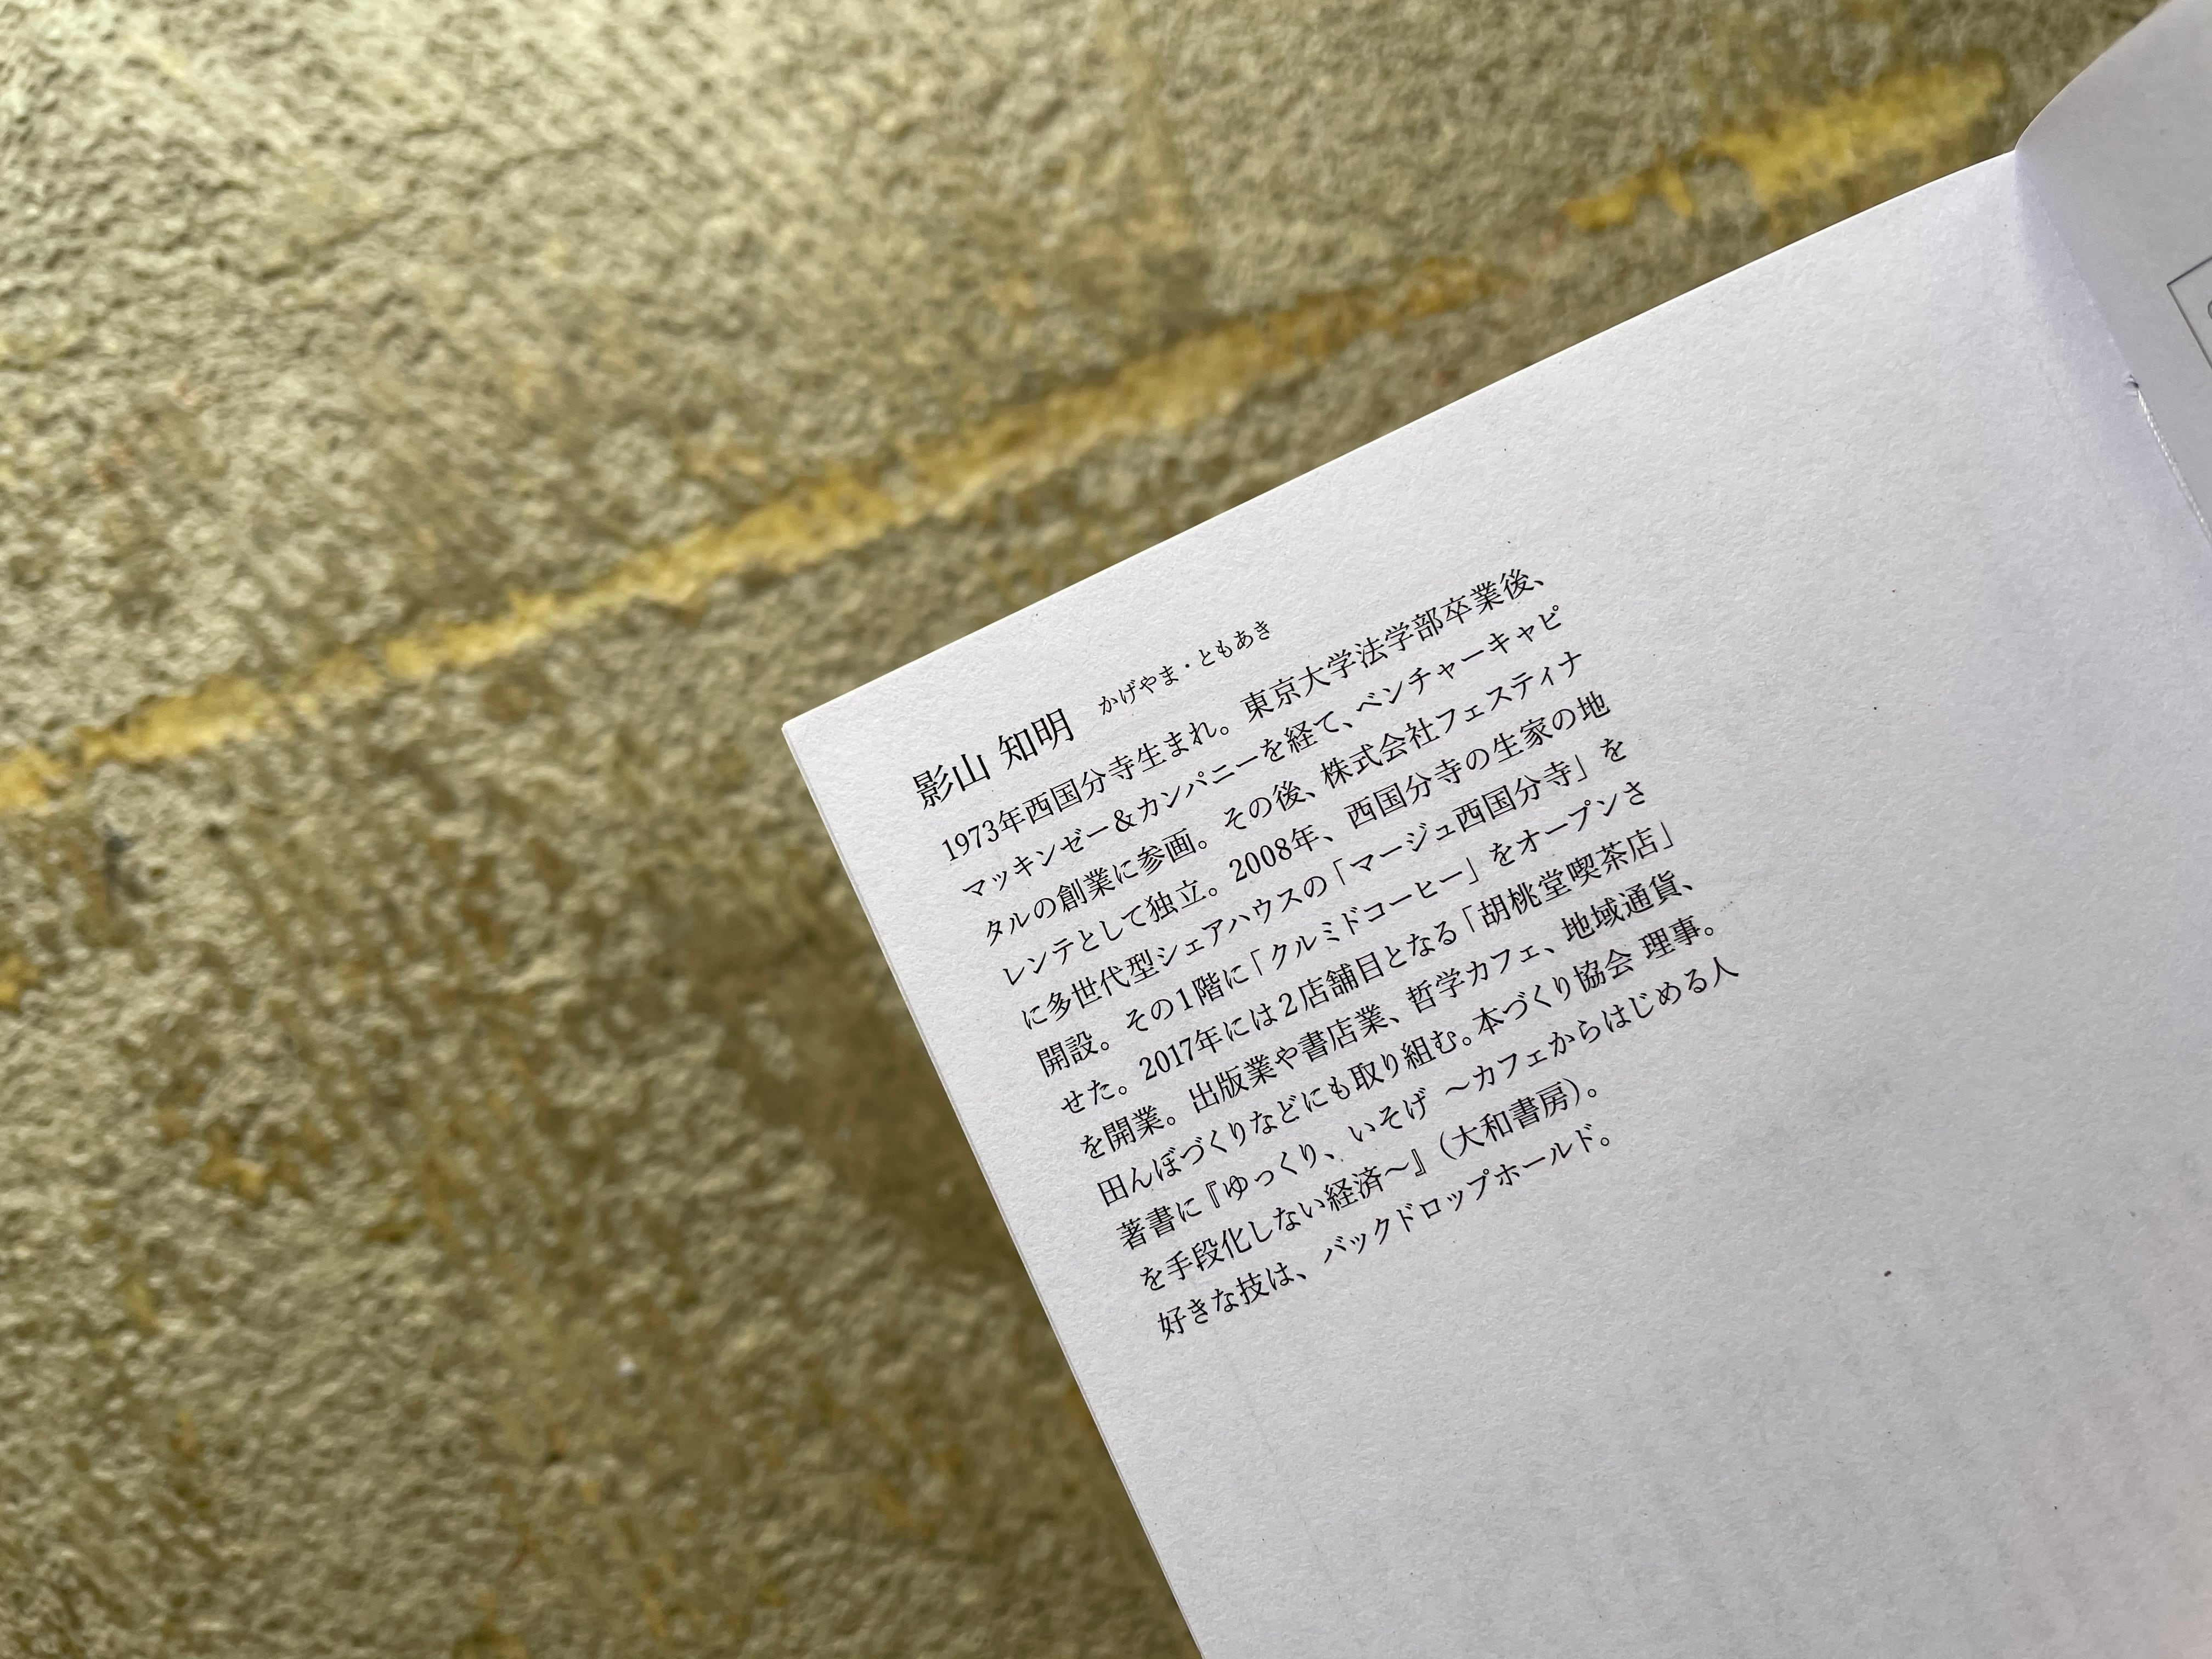 影山 知明 かげやま・ともあき
1973年西国分寺生まれ。東京大学法学部卒業後、
マッキンゼー&カンパニーを経て、ベンチャーキャピ
タルの創業に参画。その後、株式会社フェスティナ
レンテとして独立。2008年、西国分寺の生家の地
に多世代型シェアハウスの「マージュ西国分寺」を
開設。その1階に「クルミドコーヒー」をオープンさ
せた。2017年には2店舗目となる「胡桃堂喫茶店」
を開業。出版業や書店業、哲学カフェ、地域通貨、
田んぼづくりなどにも取り組む。本づくり協会 理事。
著書に『ゆっくり、いそげ ～カフェからはじめる人
を手段化しない経済～』（大和書房）。
好きな技は、バックドロップホールド。